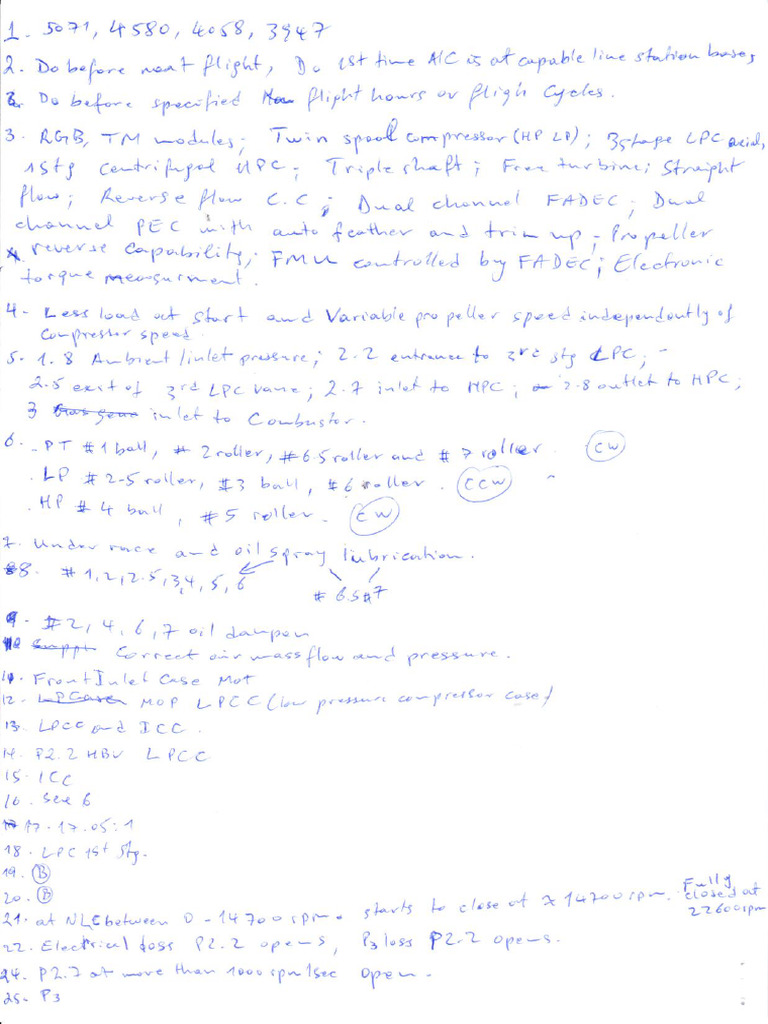 1. 5071, 4580, 4058, 3947
2. Do before next flight, Do 1st time A/C is at capable line station bases,
Do before specified flight hours or fligh Cycles.
3. RGB, TM modules; Twin spool compressor (HP LP); 3stage LPC axial,
1stg centrifugal HPC; Triple shaft; Free turbine; Straight
flow; Reverse flow C.C; Dual channel FADEC; Dual
channel PEC with auto feather and trim up; Propeller
reverse capability; FMU controlled by FADEC; Electronic
torque measurment.
4- Less load at start and Variable propeller speed independently of
compressor speed.
5. 1.8 Ambient/inlet pressure; 2.2 entrance to 3rd stg LPC; -
2.5 exit of 3rd LPC vane; 2.7 inlet to HPC; 2.8 outlet to HPC;
3 inlet to Combustor.
6. - PT #1 ball, #2 roller, #6.5 roller and #7 roller. CW
. LP #2-5 roller, #3 ball, #6 roller. CCW
. HP #4 ball, #5 roller. CW
7. Under race and oil spray lubrication.
8. #1,2,2.5,3,4,5,6
#6.5 #7
9. #2,4,6,7 oil dampen
Correct air mass flow and pressure.
11. Front Inlet Case Mot
12. MOP LPCC (low pressure compressor case)
13. LPCC and ICC.
14. P2.2 HBV LPCC
15. ICC
16. see 6
17. 17.05:1
18. LPC 1st stg.
19. B
20. B
21. at NLC between 0 - 14700 rpm. starts to close at > 14700 rpm. Fully
closed at
22600rpm
22. Electrical loss P2.2 opens, P3 loss P2.2 opens.
24. P2.7 at more than 1000 rpm/sec open.
25. P3